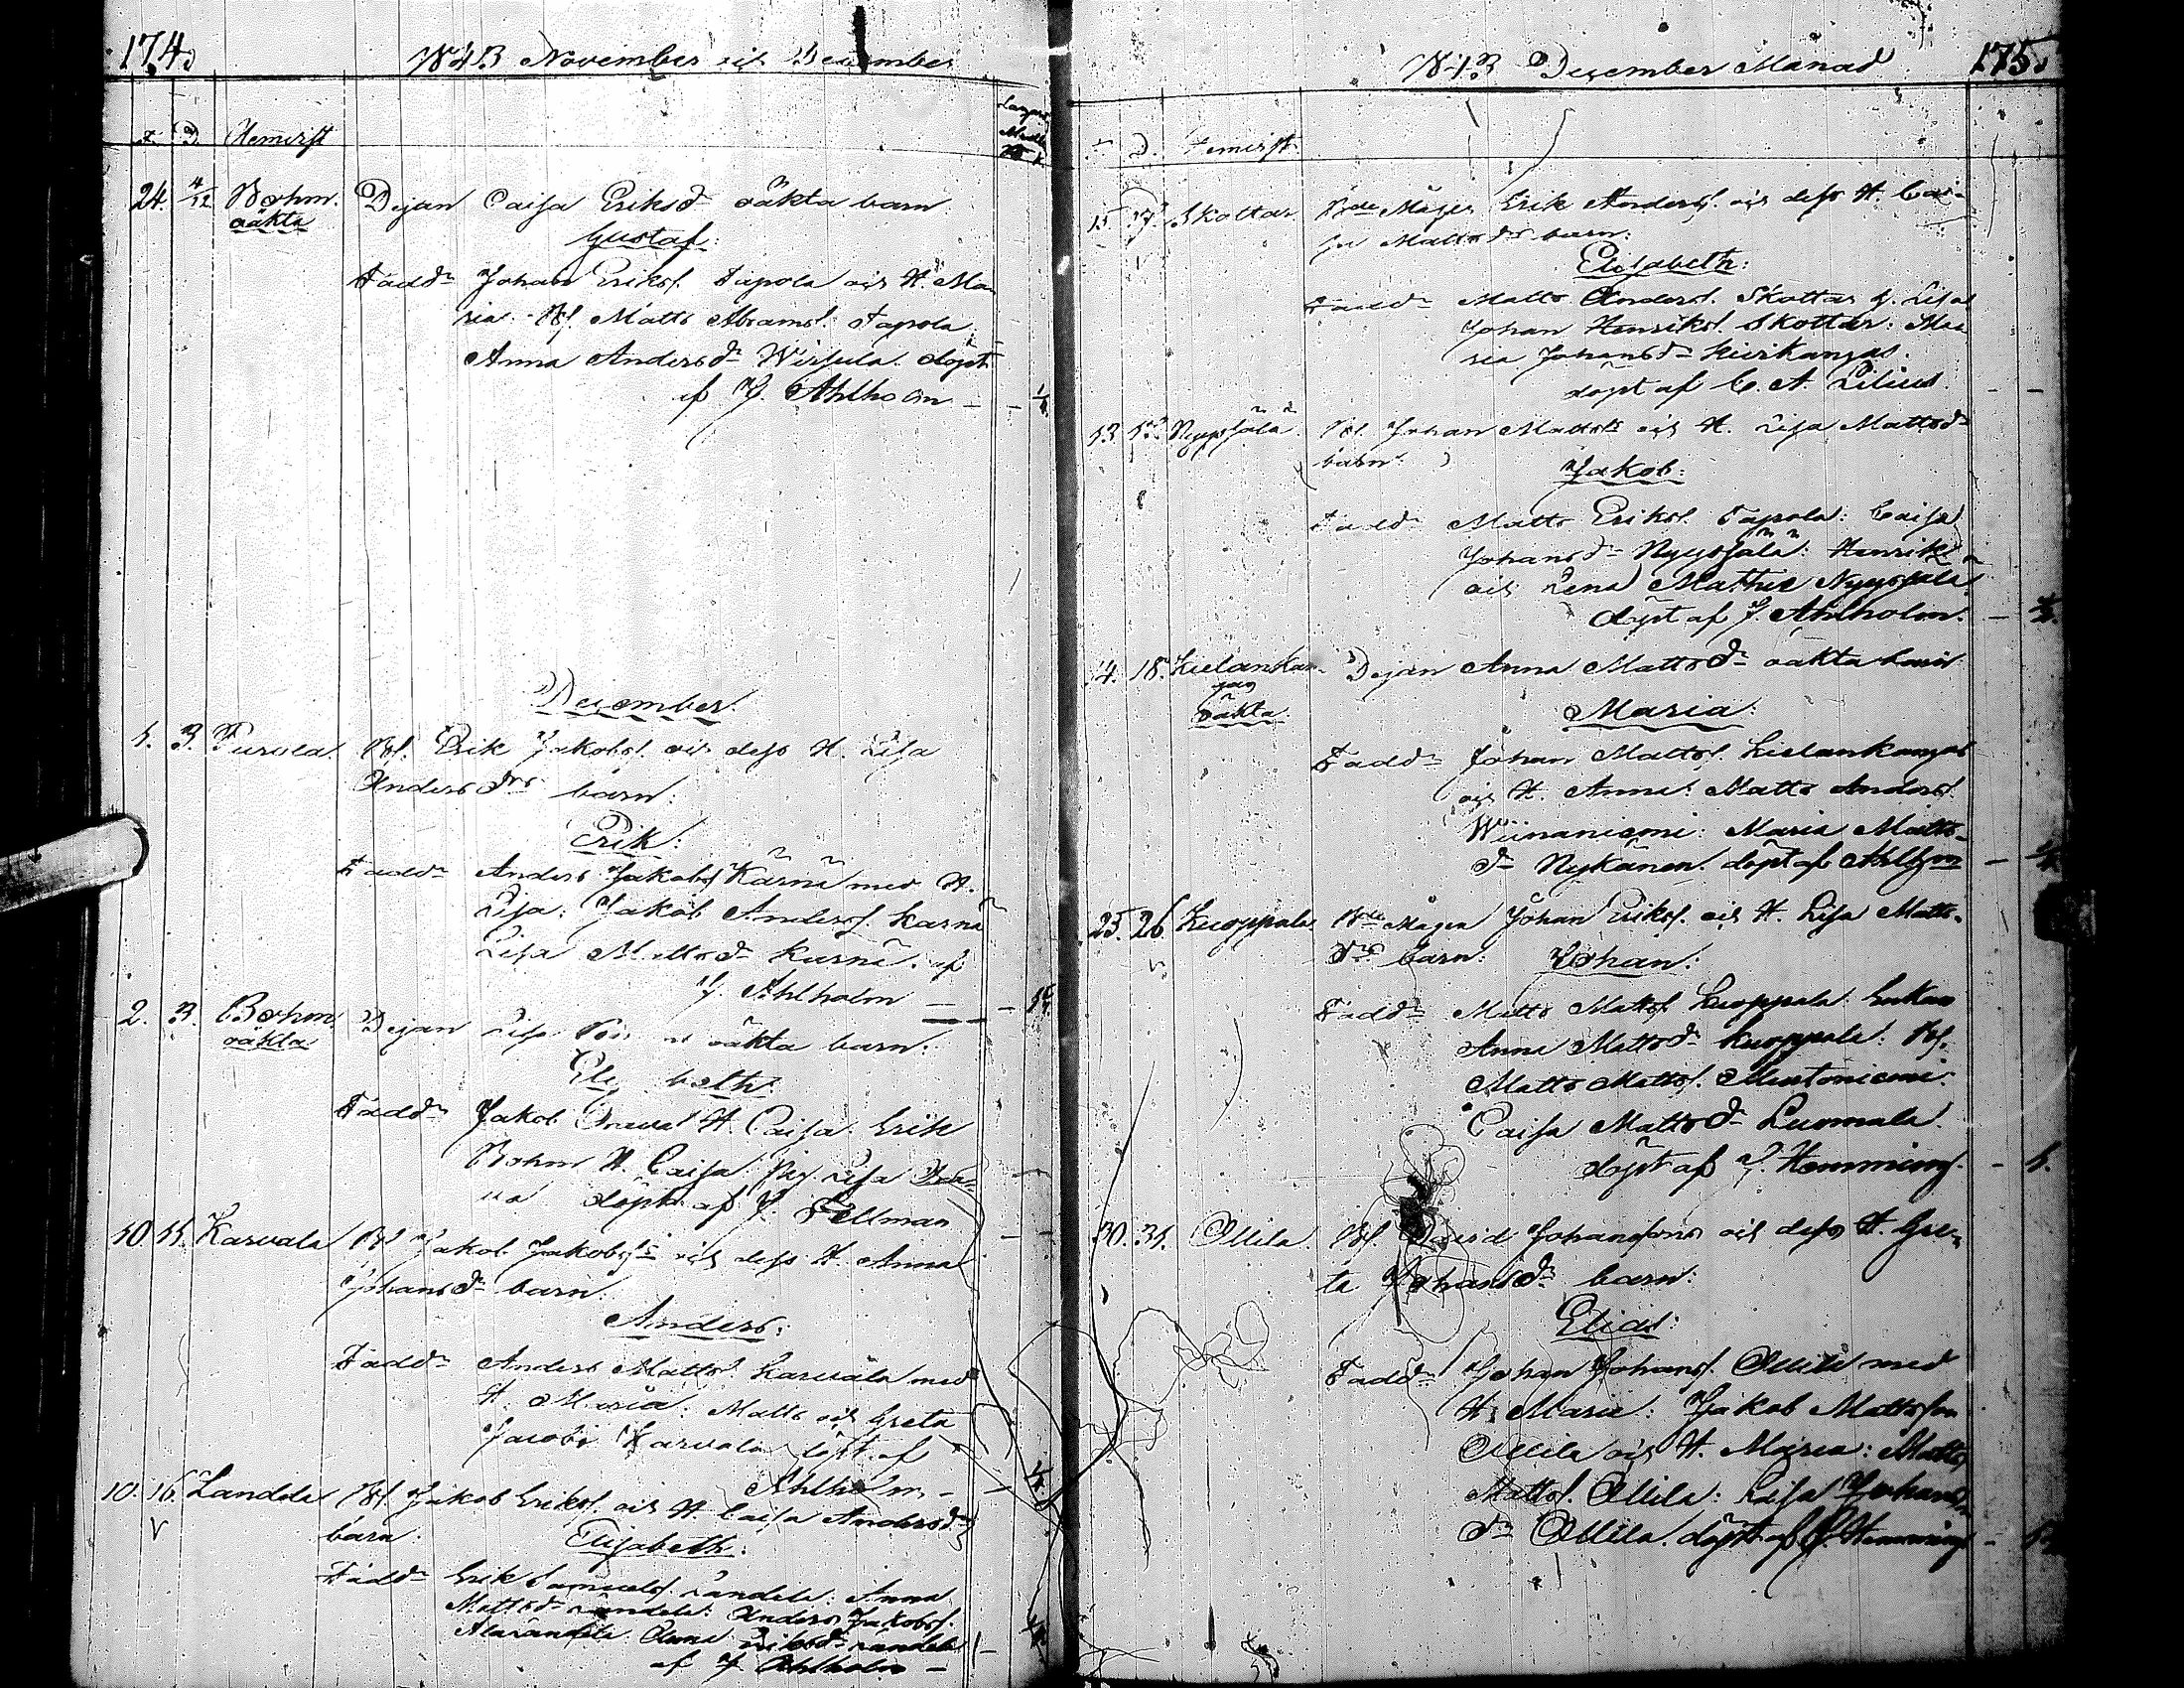 174.
1843 November och December
F. D. Hemvist
24. 4/12 Bohm. Dejan Caisa Eriksdr oäkta barn
oäkta
Gustaf:
Faddr Johan Eriks. Tapola och H. Ma-
ria. Bd. Matts Abrams. Tapola.
Anna Andersdr Wirsula. döpt
af J. Ahlholm
December.
1. 3. Purola. Bd. Erik Jakobs. och dess H. Lisa
Andersdrs barn:
Erik:
Faddr Anders Jakobs. Kärnä med H.
Lisa. Jakob Anders. Kärnä
Lisa Mattsdr Kärnä. af
J. Ahlholm
2. 3. Bohm Dejan Lisa oäkta barn:
oäkta
Elisabeth
Faddr Jakob H. Caisa. Erik
Bohm H. Caisa. Pig. Lisa
döpt af J. Fellman
10. 11. Karvala Bd Jakob Jakobs. och dess H. Anna
Johansdr barn.
Anders:
Faddr Anders Matts. Karvala med
H. Maria: Matts och Greta
Jacobi Karvala döpt af
Ahlholm
10. 16. Landela Bd. Jakob Eriks. och H. Caisa Andersdr
barn. Elisabeth:
Faddr Erik Samuels. Landela: Anna
Mattsdr Landela: Anders Jakobs.
Alarändele. Anna Eriksdr Landela
af J. Ahlholm
175.
1843 December Månad
F. D. Hemvist.
15. 17. Skottar Bde Mågen Erik Anders. och dess H. Cai-
sa Mattsdrs barn:
Elisabeth:
Faddr Matts Anders. Skottar H. Lisa
Johan Henriks. Skottar: Ma-
ria Johansdr Kivikangas.
döpt af C. A. Lilius
13. 17. Nyyssälä Bd. Johan Matts. och H. Lisa Mattsdr
barn:
Jakob:
Faddr Matts Eriks. Tapola: Caisa
Johansdr Nyyssälä: Henrik
och Lena Mathei Nyyssälä
döpt af J. Ahlholm.
14. 18. Kielankan- Dejan Anna Mattsdr oäkta barn
gas
oäkta
Maria:
Faddr Johan Matts. Kielankangas
och H. Anna: Matts Anders.
Wiinaniemi: Maria Matts-
dr Nykänen. döpt af Ahlholm
25. 26. Kuoppala Bde Mågen Johan Eriks. och H. Lisa Matts-
drs barn: Johan:
Faddr Matts Matts. Kuoppala. Enkan
Anna Mattsdr Kuoppala: Bd.
Matts Matts.
Caisa Mattsdr Luomala.
döpt af J. Hemming.
30. 31. Ollila. Bd. David Johansons och dess H. Gre-
ta Johansdr barn:
Elias:
Faddr Johan Johans. Ollila med
H. Maria: Jakob Mattsson
Ollila och H. Maria: Matts
Matts. Ollila: Lisa Johans-
dr Ollila. döpt af J. Hemming